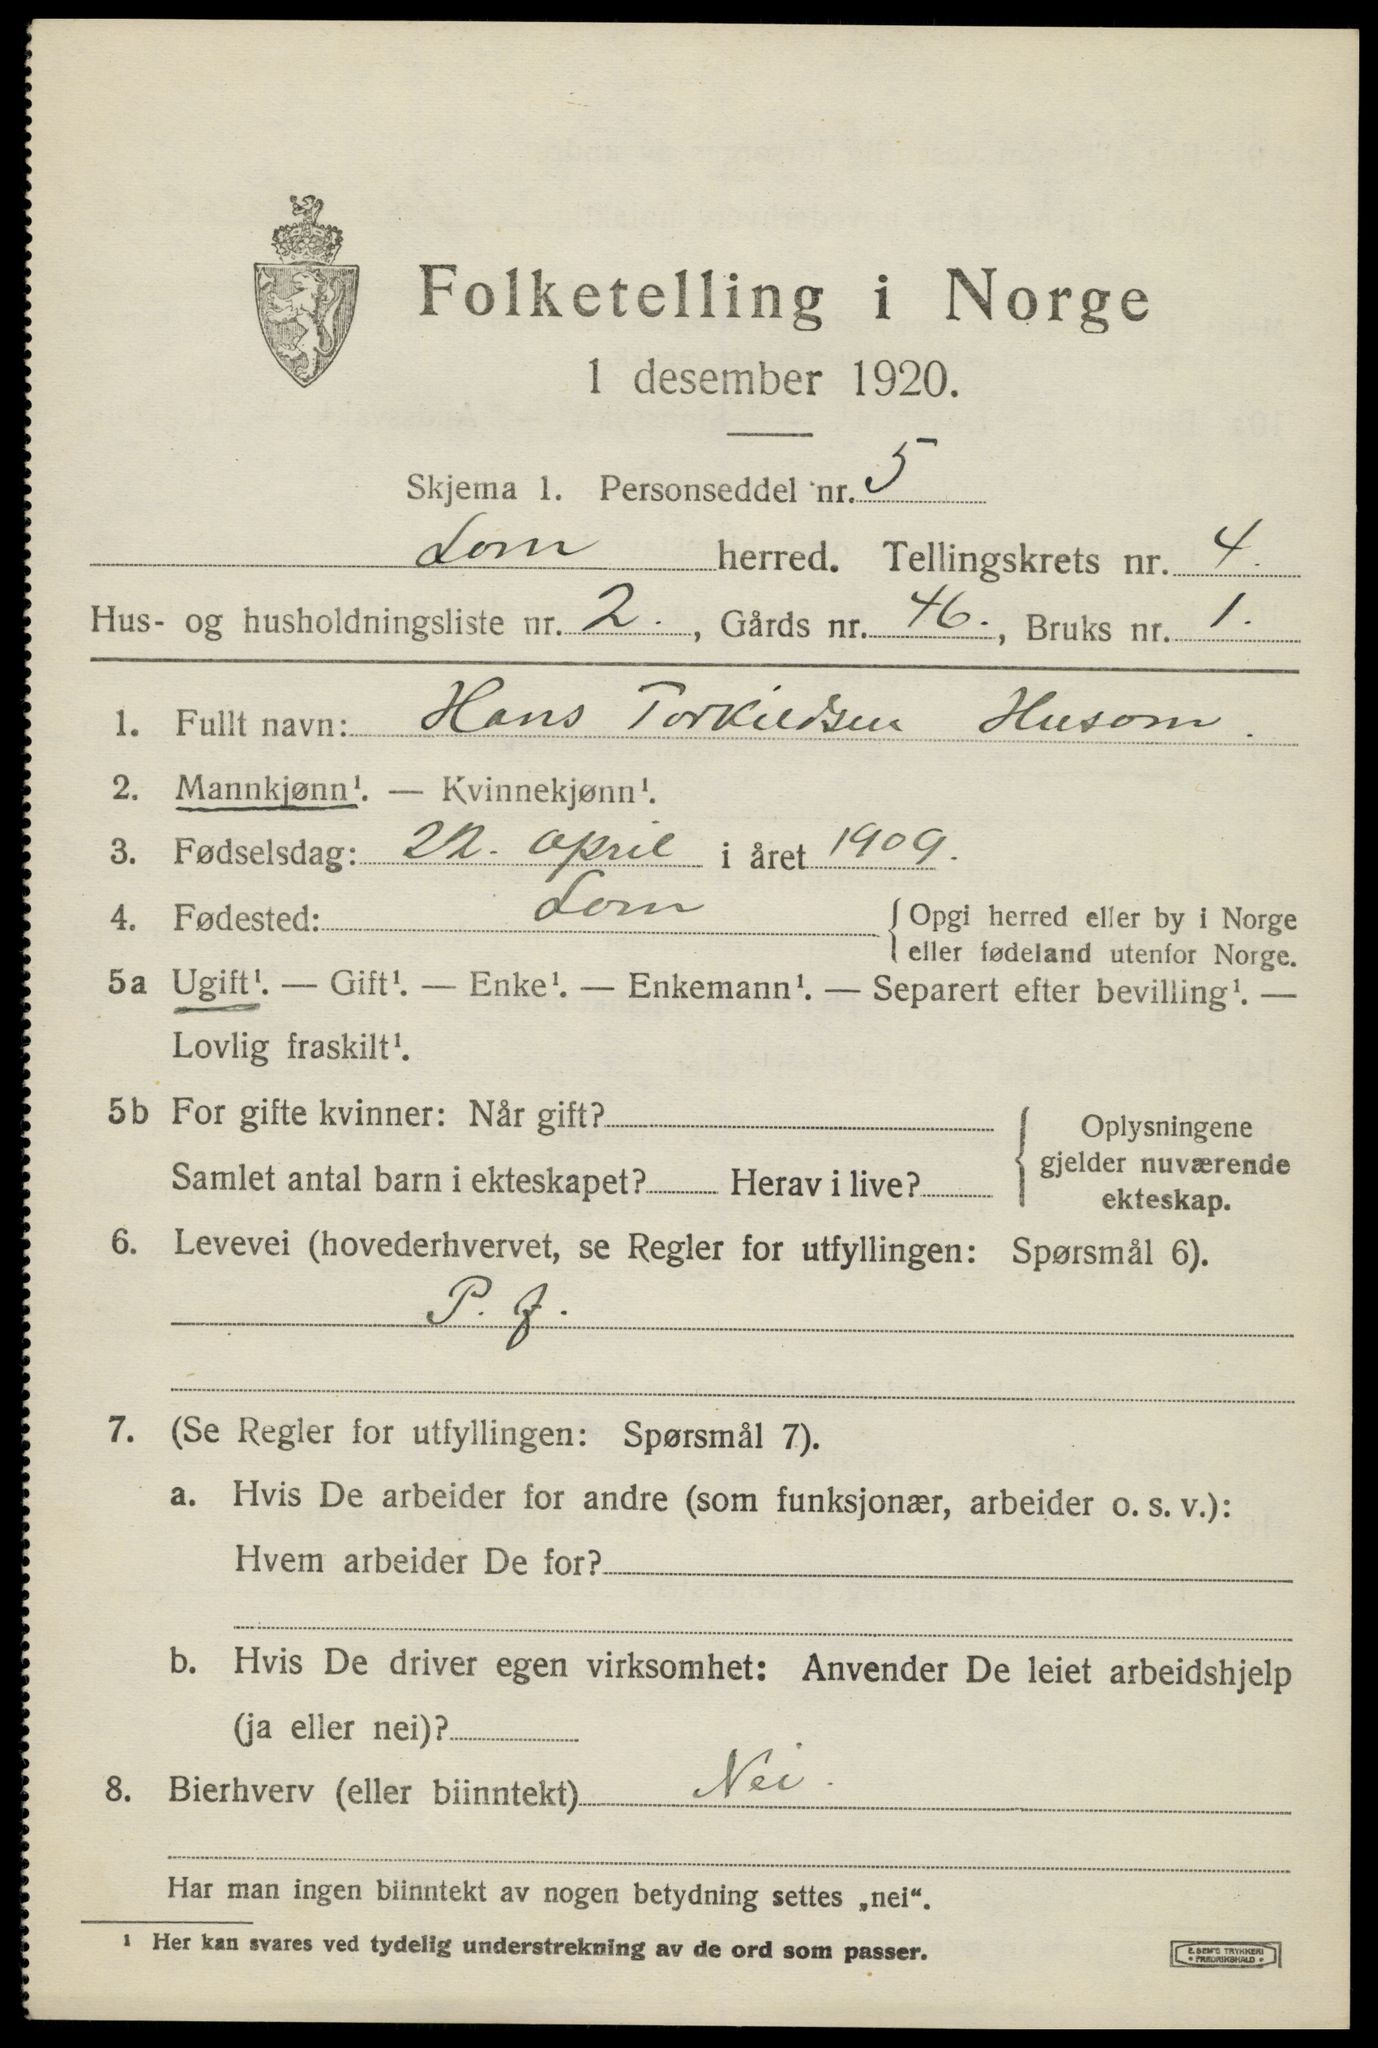 Folketelling i Norge
1 desember 1920.
Skjema 1. Personseddel nr. 5
Lom herred. Tellingskrets nr. 4.
Hus- og husholdningsliste nr. 2., Gårds nr. 46., Bruks nr. 1.
1. Fullt navn: Hans Torkildsen Husom.
2. Mannkjønn¹. — Kvinnekjønn¹.
3. Fødselsdag: 22. april i året 1909.
4. Fødested: Lom { Opgi herred eller by i Norge
eller fødeland utenfor Norge.
5a Ugift¹. — Gift¹. — Enke¹. — Enkemann¹. — Separert efter bevilling¹. —
Lovlig fraskilt¹.
5b For gifte kvinner: Når gift?
Samlet antal barn i ekteskapet? Herav i live?
{ Oplysningene
gjelder nuværende
ekteskap.
6. Levevei (hovederhvervet, se Regler for utfyllingen: Spørsmål 6).
P. f.
7. (Se Regler for utfyllingen: Spørsmål 7).
a. Hvis De arbeider for andre (som funksjonær, arbeider o. s. v.):
Hvem arbeider De for?
b. Hvis De driver egen virksomhet: Anvender De leiet arbeidshjelp
(ja eller nei)?
8. Bierhverv (eller biinntekt) Nei.
Har man ingen biinntekt av nogen betydning settes „nei“.
¹ Her kan svares ved tydelig understrekning av de ord som passer.
E. SEM'S TRYKKERI
• FREDRIKSHALD •